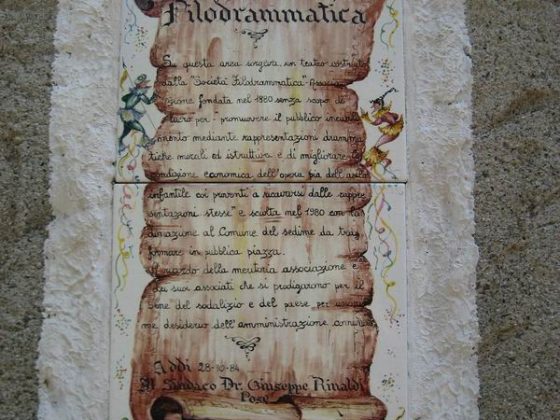 Filodrammatica
Su questa area sorgeva un teatro costruito
dalla "Società Filodrammatica" Associa-
zione fondata nel 1880 senza scopo di
lucro per "promuovere il pubblico incivil-
mento mediante rappresentazioni dramma-
tiche morali ed istruttive e di migliorare la
condizione economica dell'opera pia dell'asilo
infantile coi proventi a ricavarsi dalle rappre-
sentazioni stesse" e sciolta nel 1980 con la
donazione al Comune del sedime da tras
formare in pubblica piazza.
A ricordo della meritoria associazione e
dei suoi associati che si prodigarono per il
bene del sodalizio e del paese per
me desiderio dell'amministrazione comunale
Addì 28-10-84
Il Sindaco Dr. Giuseppe Rinaldi
Pose